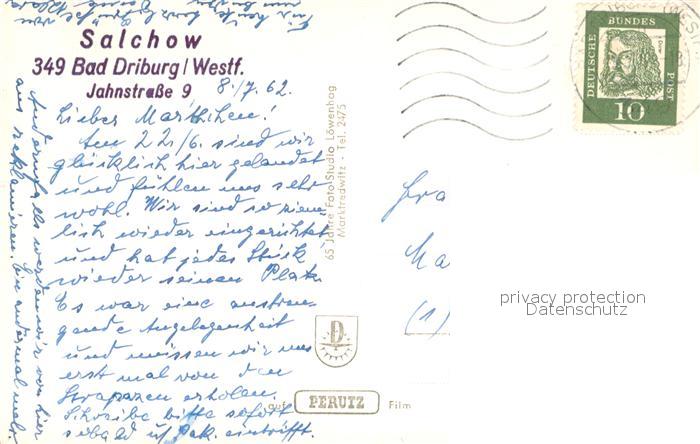 Salchow
349 Bad Driburg/Westf.
Jahnstraße 9
8./7. 62
Lieber Marthchen!
Am 22/6. sind wir
glücklich hier gelandet
und fühlen uns sehr
wohl. Wir sind so ziem-
lich wieder eingerichtet
und hat jedes Stück
wieder seinen Platz.
Es war eine anstren-
gende Angelegenheit
und müssen wir uns
erst mal von den
Strapazen erholen.
Schreibe bitte sofort
sobald Pak. eintrifft.
Andernfalls werden wir von hier
aus reklamieren. Ein andermal mehr
Für heute herzl.
von
65 Jahre Foto-Studio Löwenhag
Marktredwitz - Tel. 2475
D
auf PERUTZ Film
DEUTSCHE BUNDESPOST
10
Fra
Ma
(1)
privacy protection
Datenschutz